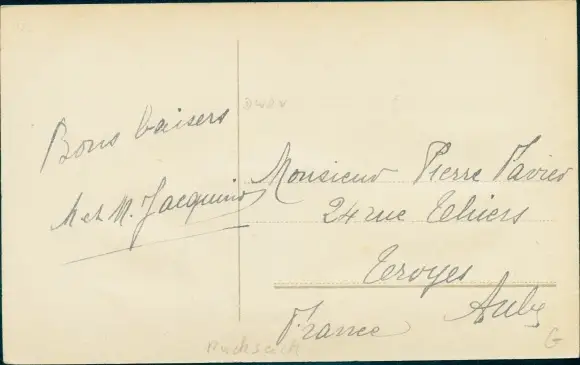 Bons baisers
M et M. Jacquinot
Monsieur Pierre
24 rue Thiers
Troyes
Aube
France
Rucksack
G